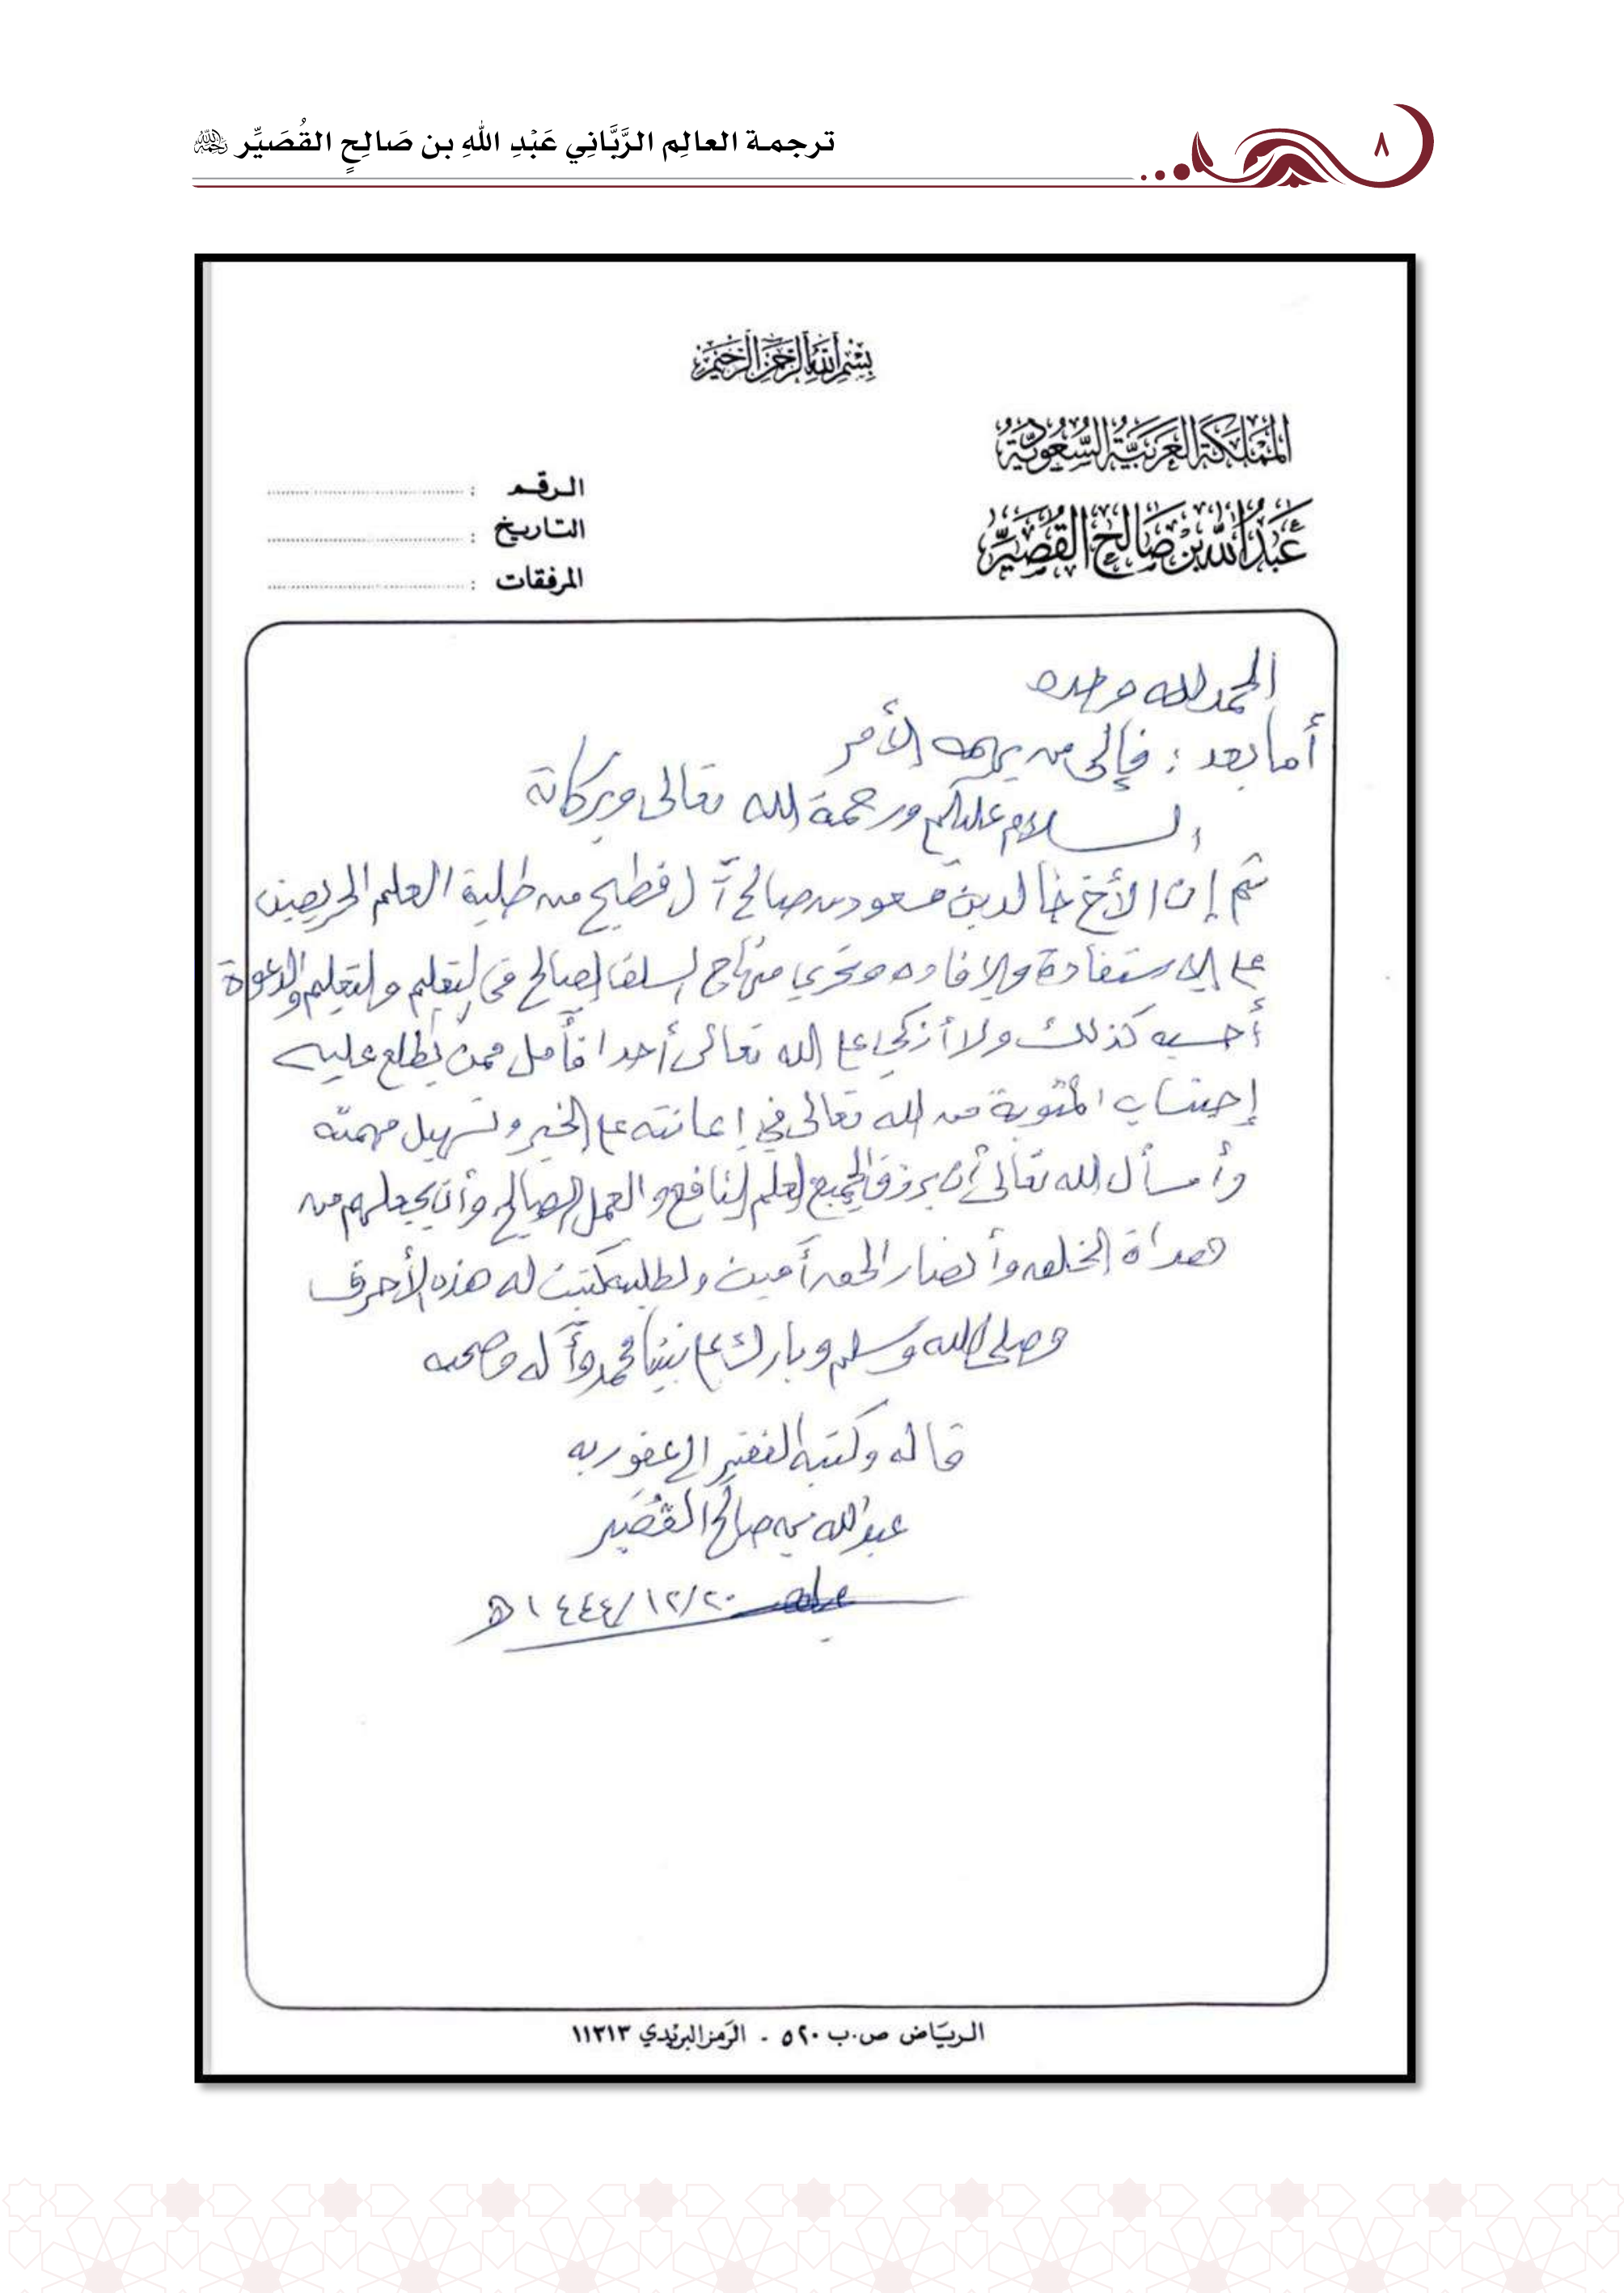 ترجمة العالِم الرَّبَّانِي عَبْدِ اللهِ بن صَالِحٍ القُصَيِّر رحمه الله
٨
بسم الله الرحمن الرحيم
المملكة العربية السعودية
عبد الله بن صالح القصير
الرقم :
التاريخ :
المرفقات :
الحمد لله وحده
أما بعد : فإلى من يهمه الأمر
السلام عليكم ورحمة الله تعالى وبركاته
ثم إن الأخ خالد بن مسعود بن صالح آل فطيح من طلبة العلم الحريصين
على الاستفادة والإفادة وتحري منهاج السلف الصالح في التعلم والتعليم والدعوة
أحسبه كذلك ولا أزكي على الله تعالى أحدا فآمل ممن يطلع عليه
إحتساب المثوبة من الله تعالى في إعانته على الخير وتسهيل مهمته
وأسأل الله تعالى أن يرزق الجميع العلم النافع والعمل الصالح وأن يجعلهم من
هداة الخلق وأنصار الحق آمين ولطلبه كتبت له هذه الأحرف
وصلى الله وسلم وبارك على نبينا محمد وآله وصحبه
قاله وكتبه الفقير إلى عفو ربه
عبد الله بن صالح القُصَيِر
٢٠/١٢/١٤٤٤هـ
الرياض ص.ب ٥٢٠ - الرمز البريدي ١١٣١٣